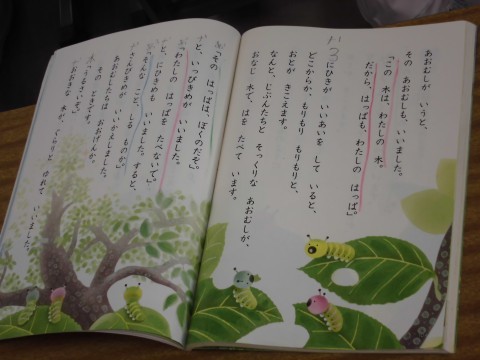 あおむしが いうと、
その あおむしも、いいました。
「この 木は、わたしの 木。
だから、はっぱも、わたしの はっぱ。」
にひきが いいあいを して いると、
どこからか、もりもり もりもりと、
おとが きこえます。
なんと、じぶんたちと そっくりな あおむしが、
おなじ 木で、はを たべて います。
「その はっぱは、ぼくのだぞ。」
と、いっぴきめが いいました。
「わたしの はっぱを たべないで。」
と、にひきめも いいました。すると、
「そんな こと、しる ものか。」
と、さんびきめが いいかえしました。
あおむしたちは、おおげんか。
その ときです。
「うるさいぞ。」
おおきな 木が、ぐらりと ゆれて いいました。